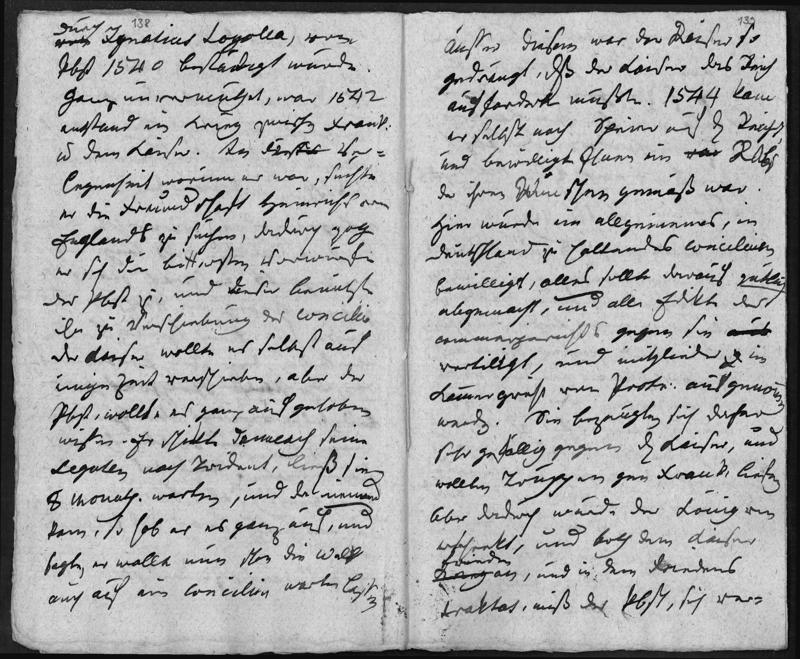 138
durch
Ignatius Loyolla, vom
Pbst 1540 bestättigt wurde.
Ganz unvermuthet, war 1542
entstand ein Krieg zwischen Frank.
u dem Kaiser. In dieser Ver=
legenheit worinn er war, suchte
er die Freundschaft Heinrichs von
Englands zu suchen, dadurch zog
er sich die bittersten Vorwürfe
des Pbst zu, und dieser benutzte
ihn zu Verschiebung des Concilii
der Kaiser wollte es selbst auf
einige Zeit verschieben, aber der
Pbst, wollte es ganz aufgehoben
wissen. Er schikte demnach seine
Legaten nach Trident, ließ sie
8 Monath. warten, und da niemand
kam, so hob er es ganz auf, und
sagte, er wollte nun schon die Welt
auch auf ein Concilien warten lassen
139
ausser diesem war der Kaiser so
gedrängt, dß der Kaiser das Reich
auffordern mußte. 1544 kam
er selbst nach Speier auf d Reichst
und bewilligte ihnen ein
der ihren Wünschen gemäß war.
Hier wurde ein allgemeines, in
Deutschland zu haltendes Concilium
bewilligt, alles sollte daraus gütlich
abgemacht, und alle Edikte des
Cammergerichts gegen sie
vertilgt, und Mitglieder in
Kammergericht von Prote. aufgenomen
werd. Sie bezeugten sich dafür
sehr gefällig gegen d Kaiser, und
wollten Truppen gen Frank. liefern
Aber dadurch wurde der König von
erschrekt, und both dem Kaiser
Frieden
an, und in dem Friedens
traktat, muß der Pbst, sich ver=